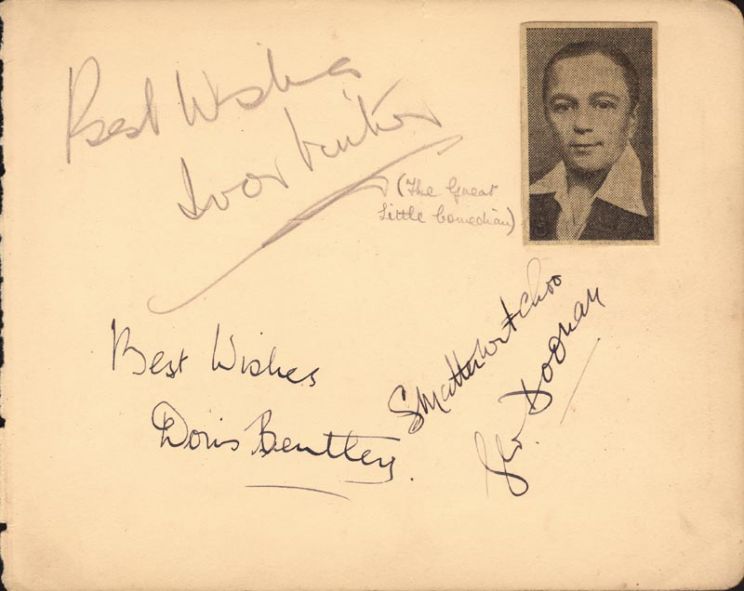 Best Wishes
Ivor Vintor
(The Great
Little Comedian)
Best Wishes
Doris Bentley.
Smatterwitchoo
Geo. Doonan